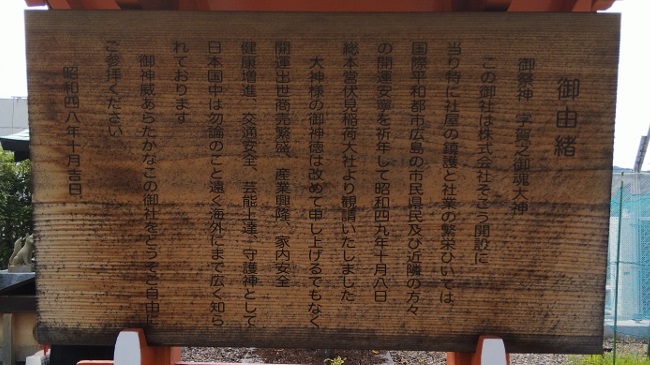 御由緒
御祭神　宇賀之御魂大神
この御社は株式会社そごう開設に
当り特に社屋の鎮護と社業の繁栄ひいては、
国際平和都市広島の市民県民及び近隣の方々
の開運安寧を祈年して昭和四九年十月八日
総本営伏見稲荷大社より観請いたしました
大神様の御神徳は改めて申し上げるでもなく
開運出世商売繁盛、産業興隆、家内安全
健康増進、交通安全、芸能上達、守護神として
日本国中は勿論のこと遠く海外にまで広く知ら
れております
御神威あらたかなこの御社をどうぞご自由に
ご参拝ください
昭和四八年十月吉日